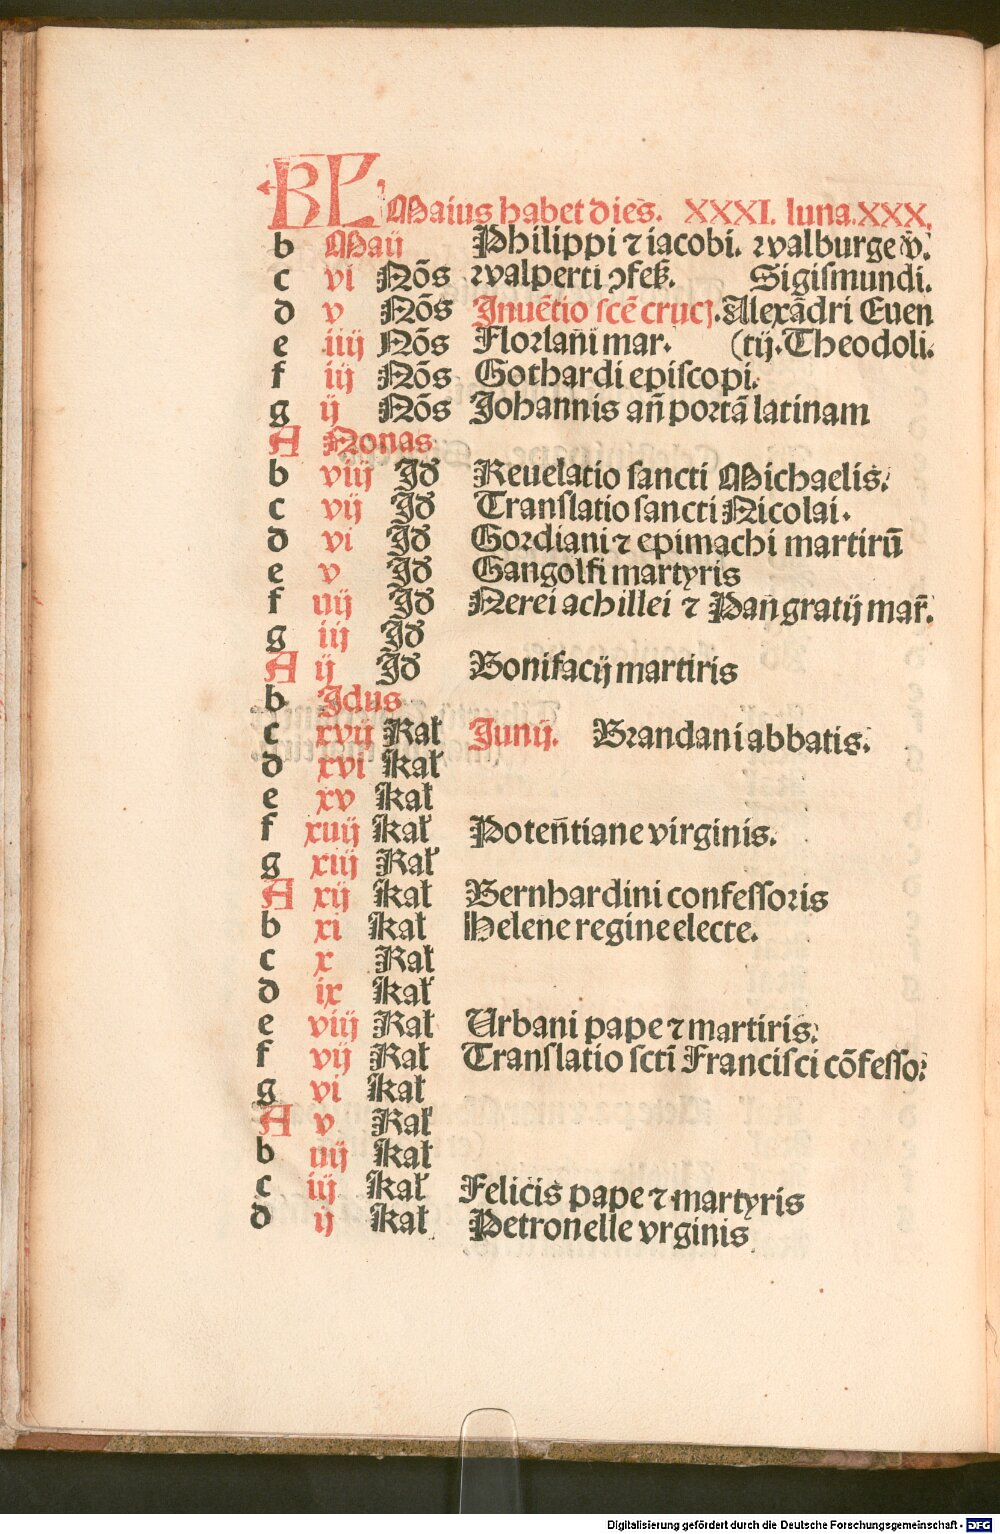 KL Maius habet dies. XXXI. luna. XXX.
b Maij Philippi ⁊ iacobi. walburge v̄.
c vi Nōs walperti ꝯfeſſ. Sigiſmundi.
d v Nōs Inuētio ſcē crucꝭ. Alexādri Euen
e iiij Nōs Florlan̄i mar. (tij. Theodoli.
f iij Nōs Gothardi epiſcopi.
g ij Nōs Johannis an̄ portā latinam
A Nonas
b viij Id Reuelatio ſancti Michaelis.
c vij Id Tranſlatio ſancti Nicolai.
d vi Id Gordiani ⁊ epimachi martirū
e v Id Gangolfi martyris
f iiij Id Nerei achillei ⁊ Pangratij mar̄.
g iij Id
A ij Id Bonifacij martiris
b Idus
c xvij Kal Junij. Brandani abbatis.
d xvi kal
e xv kal
f xiiij kal Poten̄tiane virginis.
g xiij Kal
A xij kal Bernhardini confeſſoris
b xi kal Helene regine electe.
c x Kal
d ix kal
e viij Kal Urbani pape ⁊ martiris.
f vij Kal Tranſlatio ſcti Franciſci cōfeſſor
g vi kal
A v Kal
b iiij kal
c iij kal Felicis pape ⁊ martyris
d ij kal Petronelle vrginis
Digitalisierung gefördert durch die Deutsche Forschungsgemeinschaft - DFG